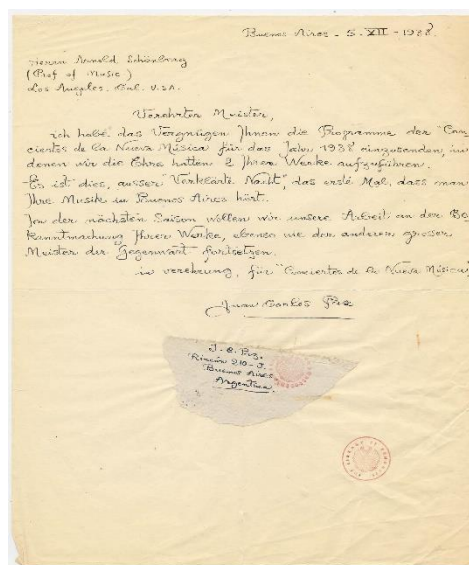 Buenos Aires - 5 - XII - 1938.
Herrn Arnold Schönberg
(Prof of Music)
Los Angeles. Cal. U.S.A.
Verehrter Meister,
ich habe das Vergnügen Ihnen die Programme der "Con
ciertos de la Nueva Música" für das Jahr 1938 einzusenden, in
denen wir die Ehre hatten 2 Ihrer Werke aufzuführen.
Es ist dies, ausser "Verklärte Nacht", das erste Mal, dass man
Ihre Musik in Buenos Aires hört.
In der nächsten Saison wollen wir unsere Arbeit an der Be
kanntmachung Ihrer Werke, ebenso wie der anderen grosser
Meister der Gegenwart fortsetzen.
in verehrung, für "Conciertos de la Nueva Música"
Juan Carlos Paz
J. C. Paz.
Rincón 210 -
Buenos Aires
Argentina.